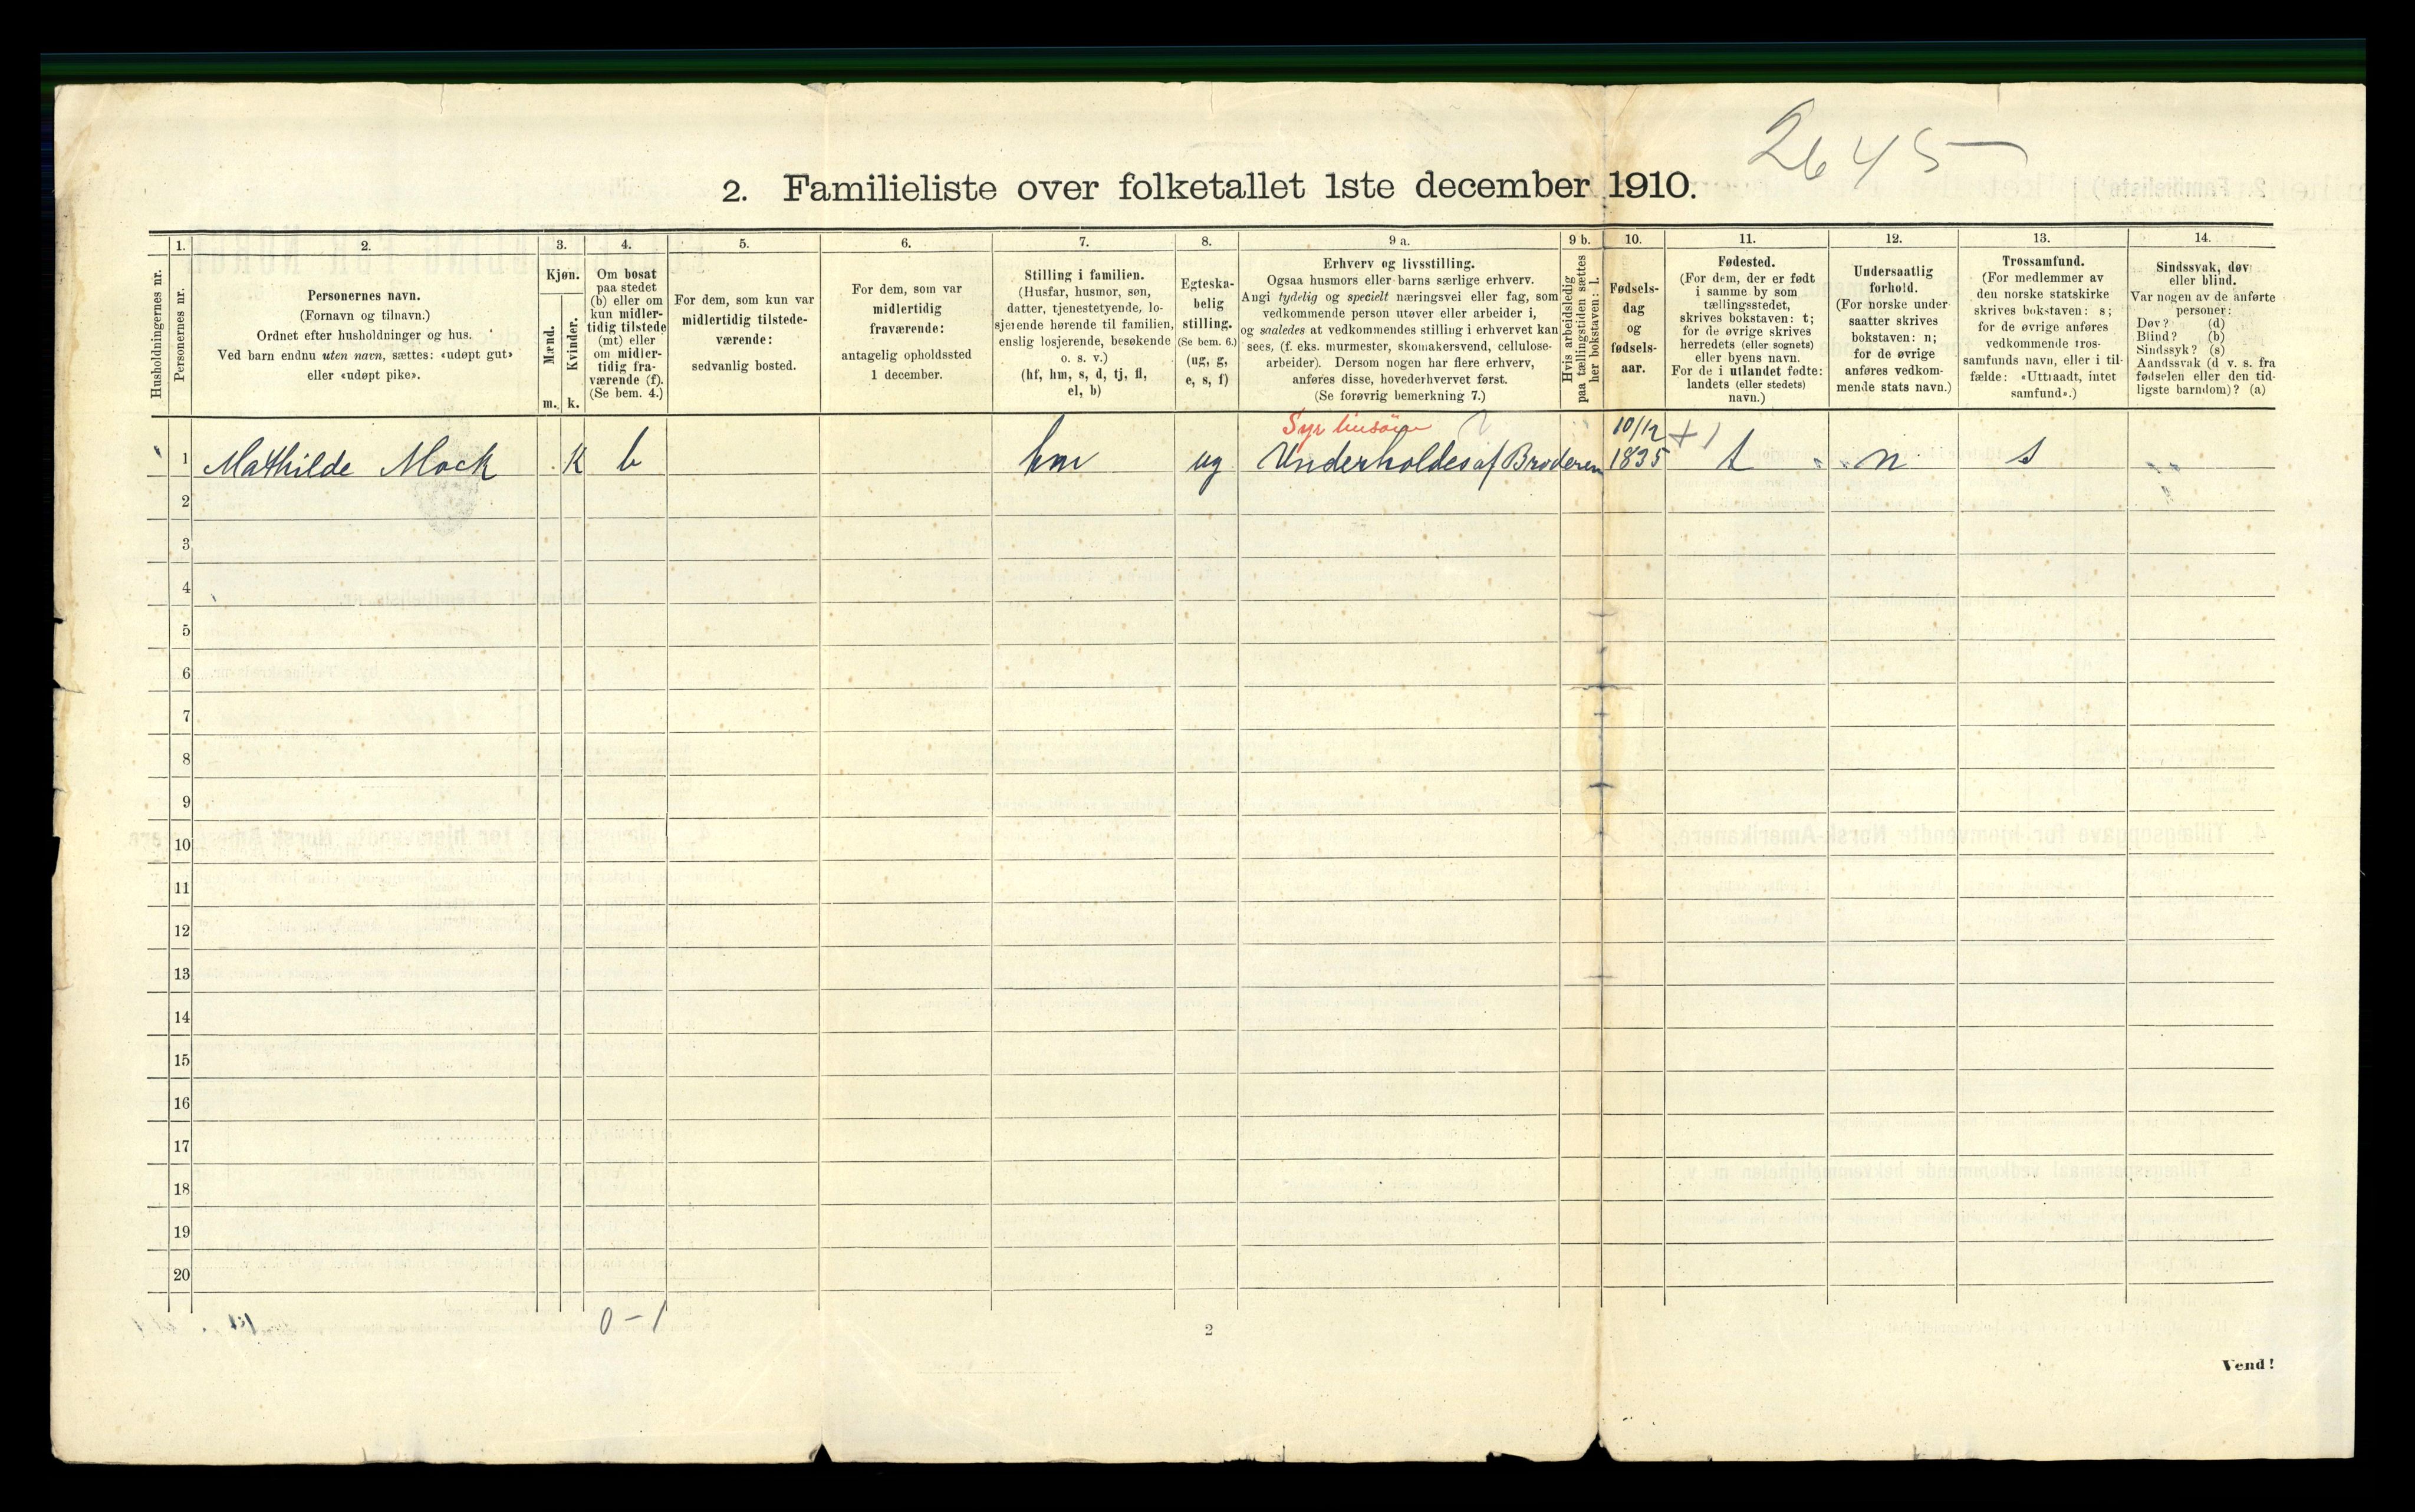 2645
2. Familieliste over folketallet 1ste december 1910.
Husholdningernes nr.
1.
Personernes nr.
2.
Personernes navn.
(Fornavn og tilnavn.)
Ordnet efter husholdninger og hus.
Ved barn endnu uten navn, sættes: «udøpt gut»
eller «udøpt pike».
3.
Kjøn.
Mænd.
Kvinder.
m.
k.
4.
Om bosat
paa stedet
(b) eller om
kun midler-
tidig tilstede
(mt) eller
om midler-
tidig fra-
værende (f).
(Se bem. 4.)
5.
For dem, som kun var
midlertidig tilstede-
værende:
sedvanlig bosted.
6.
For dem, som var
midlertidig
fraværende:
antagelig opholdssted
1 december.
7.
Stilling i familien.
(Husfar, husmor, søn,
datter, tjenestetyende, lo-
sjerende hørende til familien,
enslig losjerende, besøkende
o. s. v.)
(hf, hm, s, d, tj, fl,
el, b)
8.
Egteska-
belig
stilling.
(Se bem. 6.)
(ug, g,
e, s, f)
9 a.
Erhverv og livsstilling.
Ogsaa husmors eller barns særlige erhverv.
Angi tydelig og specielt næringsvei eller fag, som
vedkommende person utøver eller arbeider i,
og saaledes at vedkommendes stilling i erhvervet kan
sees, (f. eks. murmester, skomakersvend, cellulose-
arbeider). Dersom nogen har flere erhverv,
anføres disse, hovederhvervet først.
(Se forøvrig bemerkning 7.)
9 b.
Hvis arbeidsledig
paa tællingstiden sættes
her bokstaven: l.
10.
Fødsels-
dag
og
fødsels-
aar.
11.
Fødested.
(For dem, der er født
i samme by som
tællingsstedet,
skrives bokstaven: t;
for de øvrige skrives
herredets (eller sognets)
eller byens navn.
For de i utlandet fødte:
landets (eller stedets)
navn.)
12.
Undersaatlig
forhold.
(For norske under-
saatter skrives
bokstaven: n;
for de øvrige
anføres vedkom-
mende stats navn.)
13.
Trossamfund.
(For medlemmer av
den norske statskirke
skrives bokstaven: s;
for de øvrige anføres
vedkommende tros-
samfunds navn, eller i til-
fælde: «Uttraadt, intet
samfund».)
14.
Sindssvak, døv
eller blind.
Var nogen av de anførte
personer:
Døv? (d)
Blind? (b)
Sindssyk? (s)
Aandssvak (d. v. s. fra
fødselen eller den tid-
ligste barndom)? (a)
10/12
1 Mathilde Mock K b hm ug Underholdes af Broderen 1835 t n s
2
3
4
5
6
7
8
9
10
11
12
13
14
15
16
17
18
19
20
0-1
2
Vend!